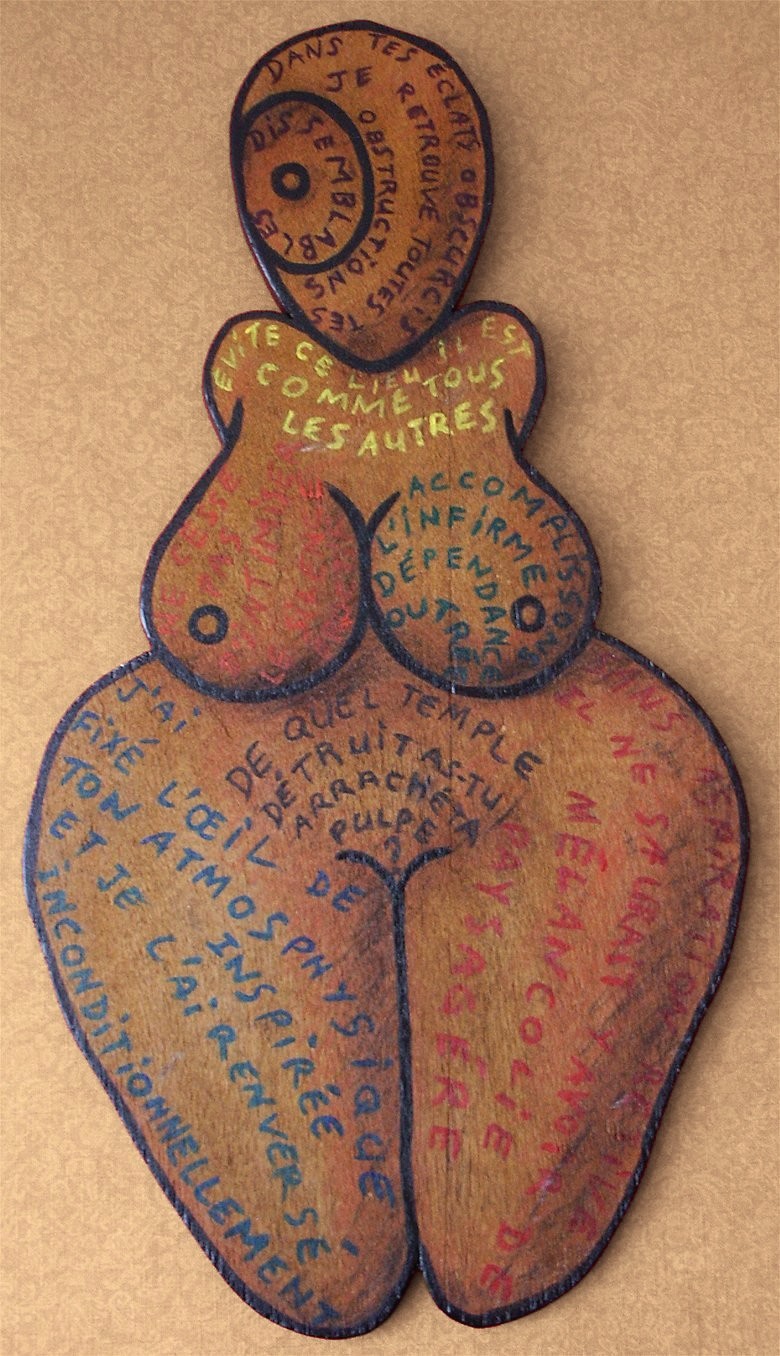 DANS TES ÉCLATS OBSCURCIS
JE RETROUVE TOUTES TES
OBSTRUCTIONS
DISSEMBLABLES
ÉVITE CE LIEU IL EST
COMME TOUS
LES AUTRES
NE CESSE
PAS
ACCOMPLISSONS
L'INFIRME
DÉPENDANCE
OUTRÉE
DE QUEL TEMPLE
DÉTRUIT AS-TU
ARRACHÉ TA
PULPE
?
J'AI
FIXÉ L'ŒIL DE
TON ATMOSPHYSIQUE
INSPIRÉE
ET JE L'AI RENVERSÉ
INCONDITIONNELLEMENT
SANS ASPIRATION
IL NE SAURAIT Y AVOIR DE
MÉLANCOLIE
PAYSAGÈRE